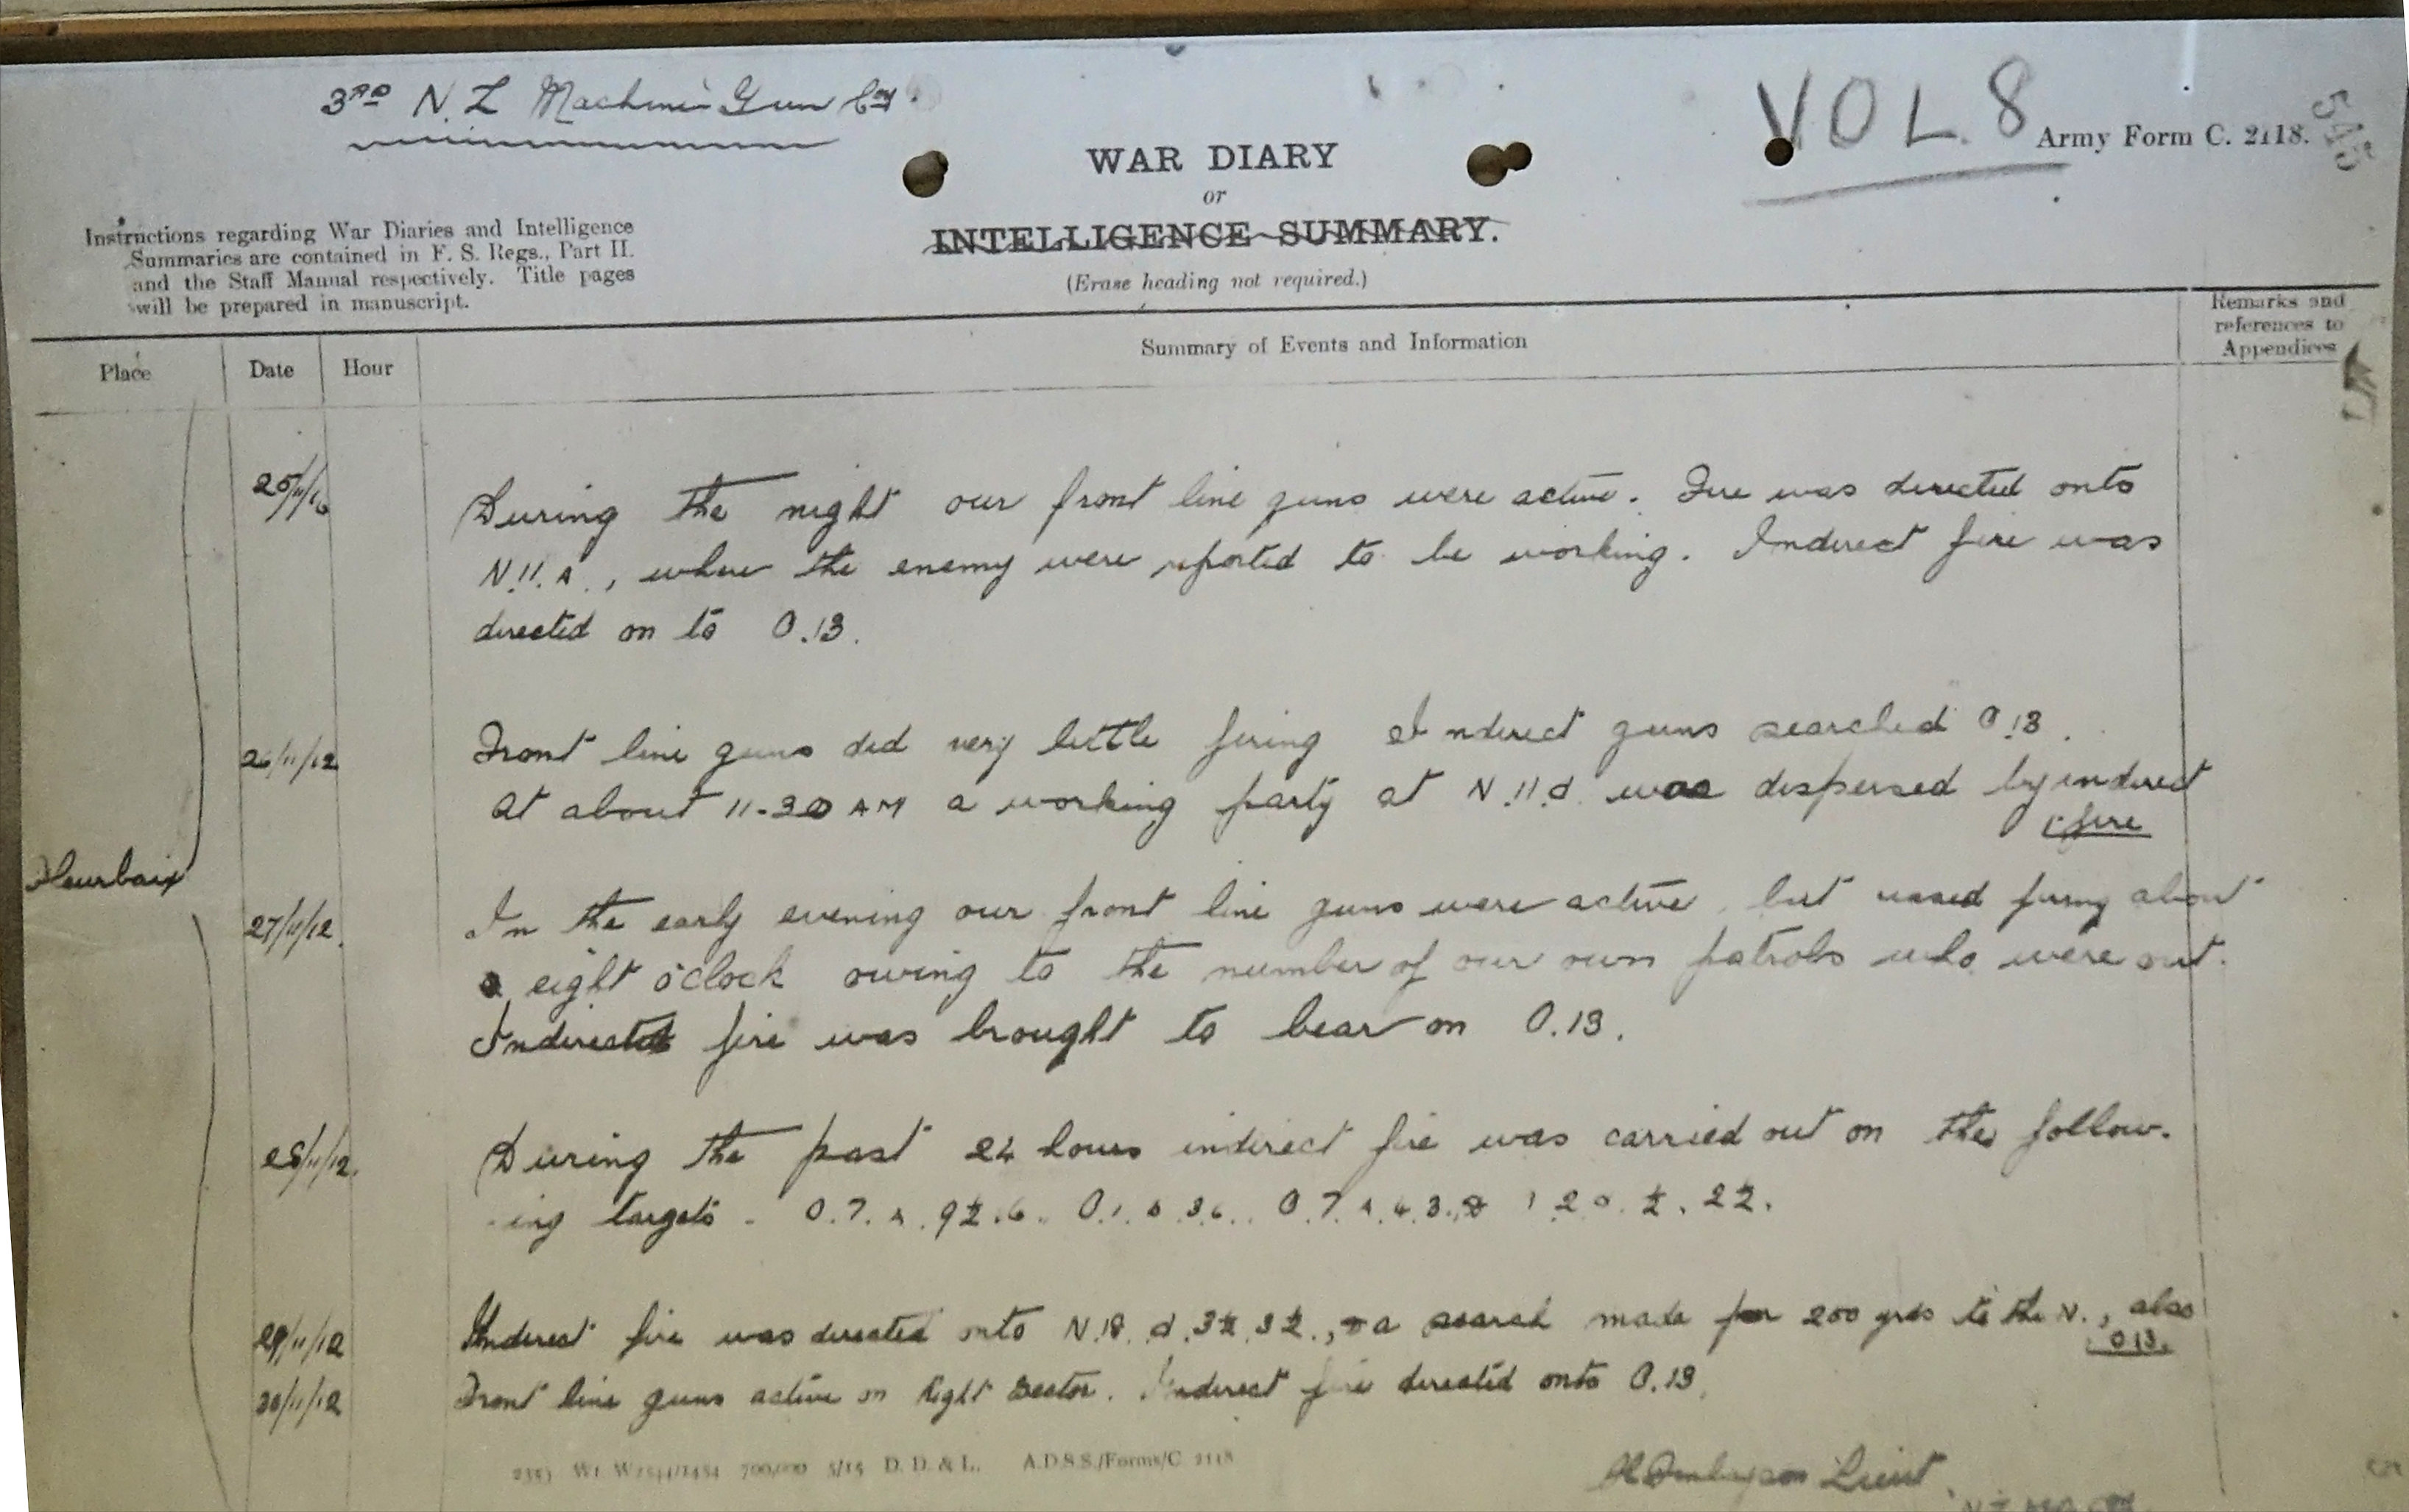 3RD N.Z Machine Gun Coy.
VOL. 8
Army Form C. 2118.
545
WAR DIARY
or
INTELLIGENCE SUMMARY.
(Erase heading not required.)
Instructions regarding War Diaries and Intelligence
Summaries are contained in F. S. Regs., Part II.
and the Staff Manual respectively. Title pages
will be prepared in manuscript.
Place Date Hour Summary of Events and Information Remarks and
references to
Appendices
25/11/16 During the night our front line guns were active. Fire was directed onto
N.11.A., where the enemy were reported to be working. Indirect fire was
directed on to O.13.
26/11/12 Front line guns did very little firing Indirect guns searched O.13.
At about 11-30 AM a working party at N.11.d. was dispersed by indirect
fire
Fleurbaix
27/11/12. In the early evening our front line guns were active, but ceased firing about
eight o'clock owing to the number of our own patrols who were out.
Indirect fire was brought to bear on O.13.
28/11/12. During the past 24 hours indirect fire was carried out on the follow-
ing targets - O.7.A.9½.6.. O.7.A.4.3.
29/11/12 Indirect fire was directed onto N.18.d.3½.3½., a search made for 200 yds to the N., also
O.13.
30/11/12 Front line guns active on Right Sector. Indirect fire directed onto O.13.
W1 W2544/1454 700,000 5/15 D. D. & L. A.D.S.S./Forms/C 2118
Lieut.